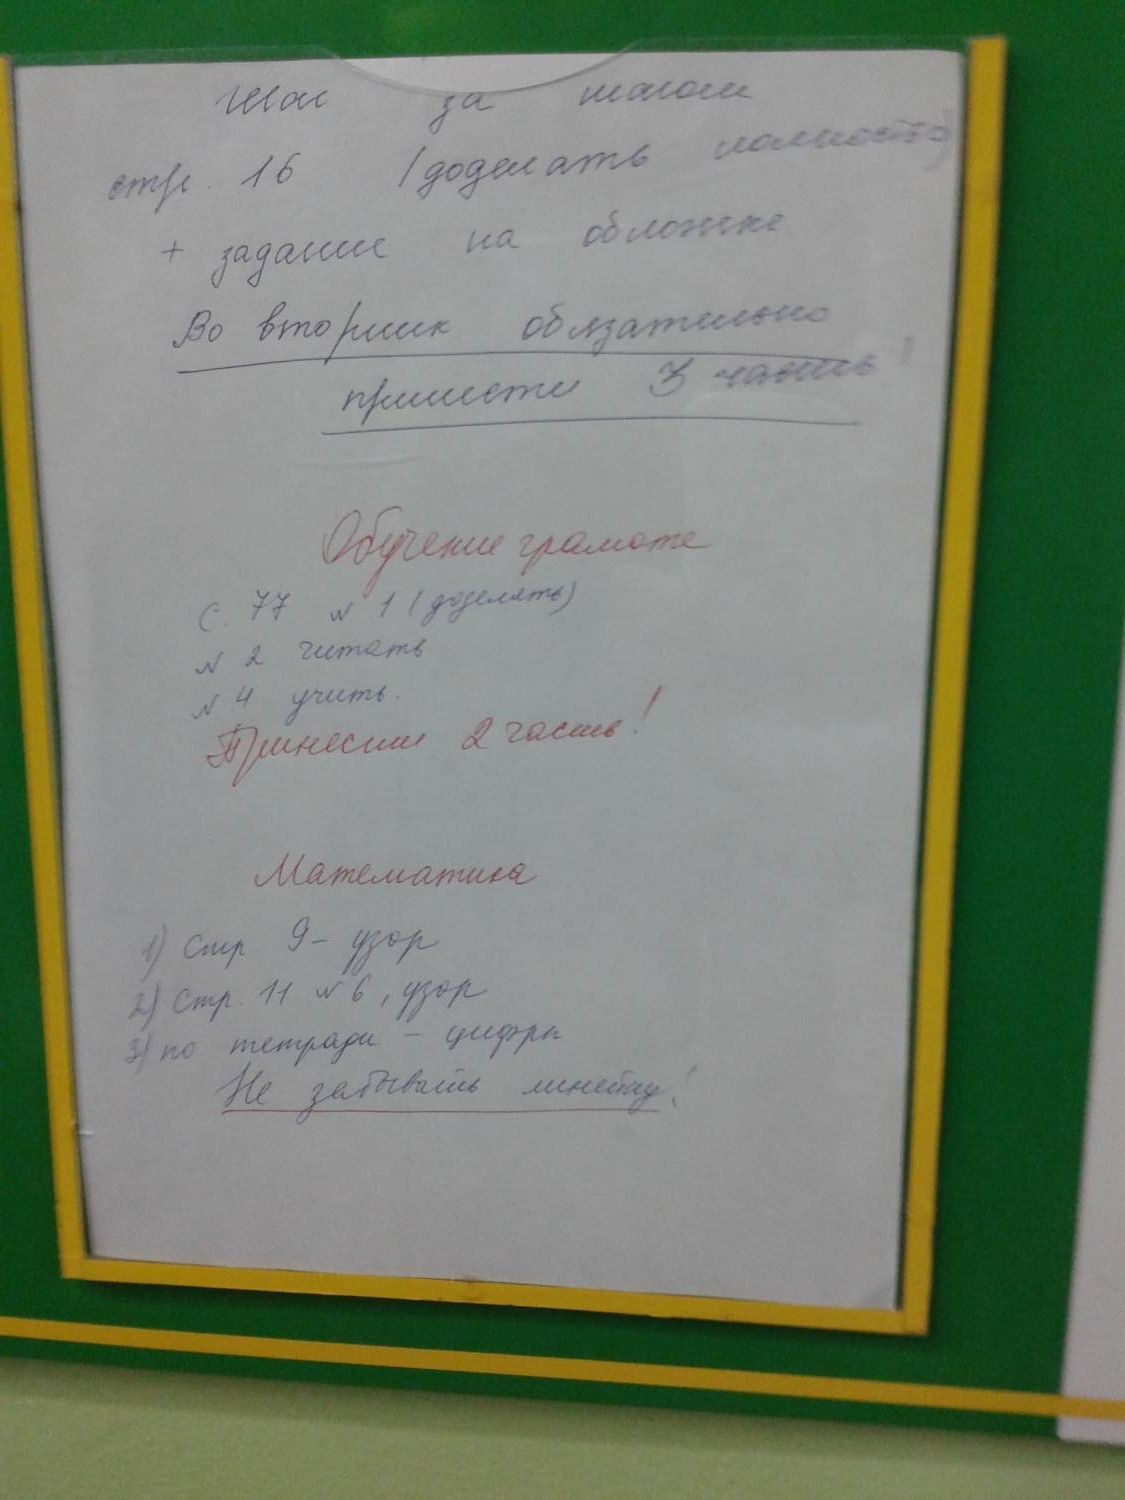 Шаг за шагом
стр. 16 (доделать полностью)
+ задание на обложке
Во вторник обязательно
принести 3 часть!
Обучение грамоте
с. 77 № 1 (доделать)
№ 2 читать
№ 4 учить.
Принести 2 часть!
Математика
1) Стр. 9 - узор
2) Стр. 11 № 6, узор
3) по тетради - цифры
Не забывать линейку!